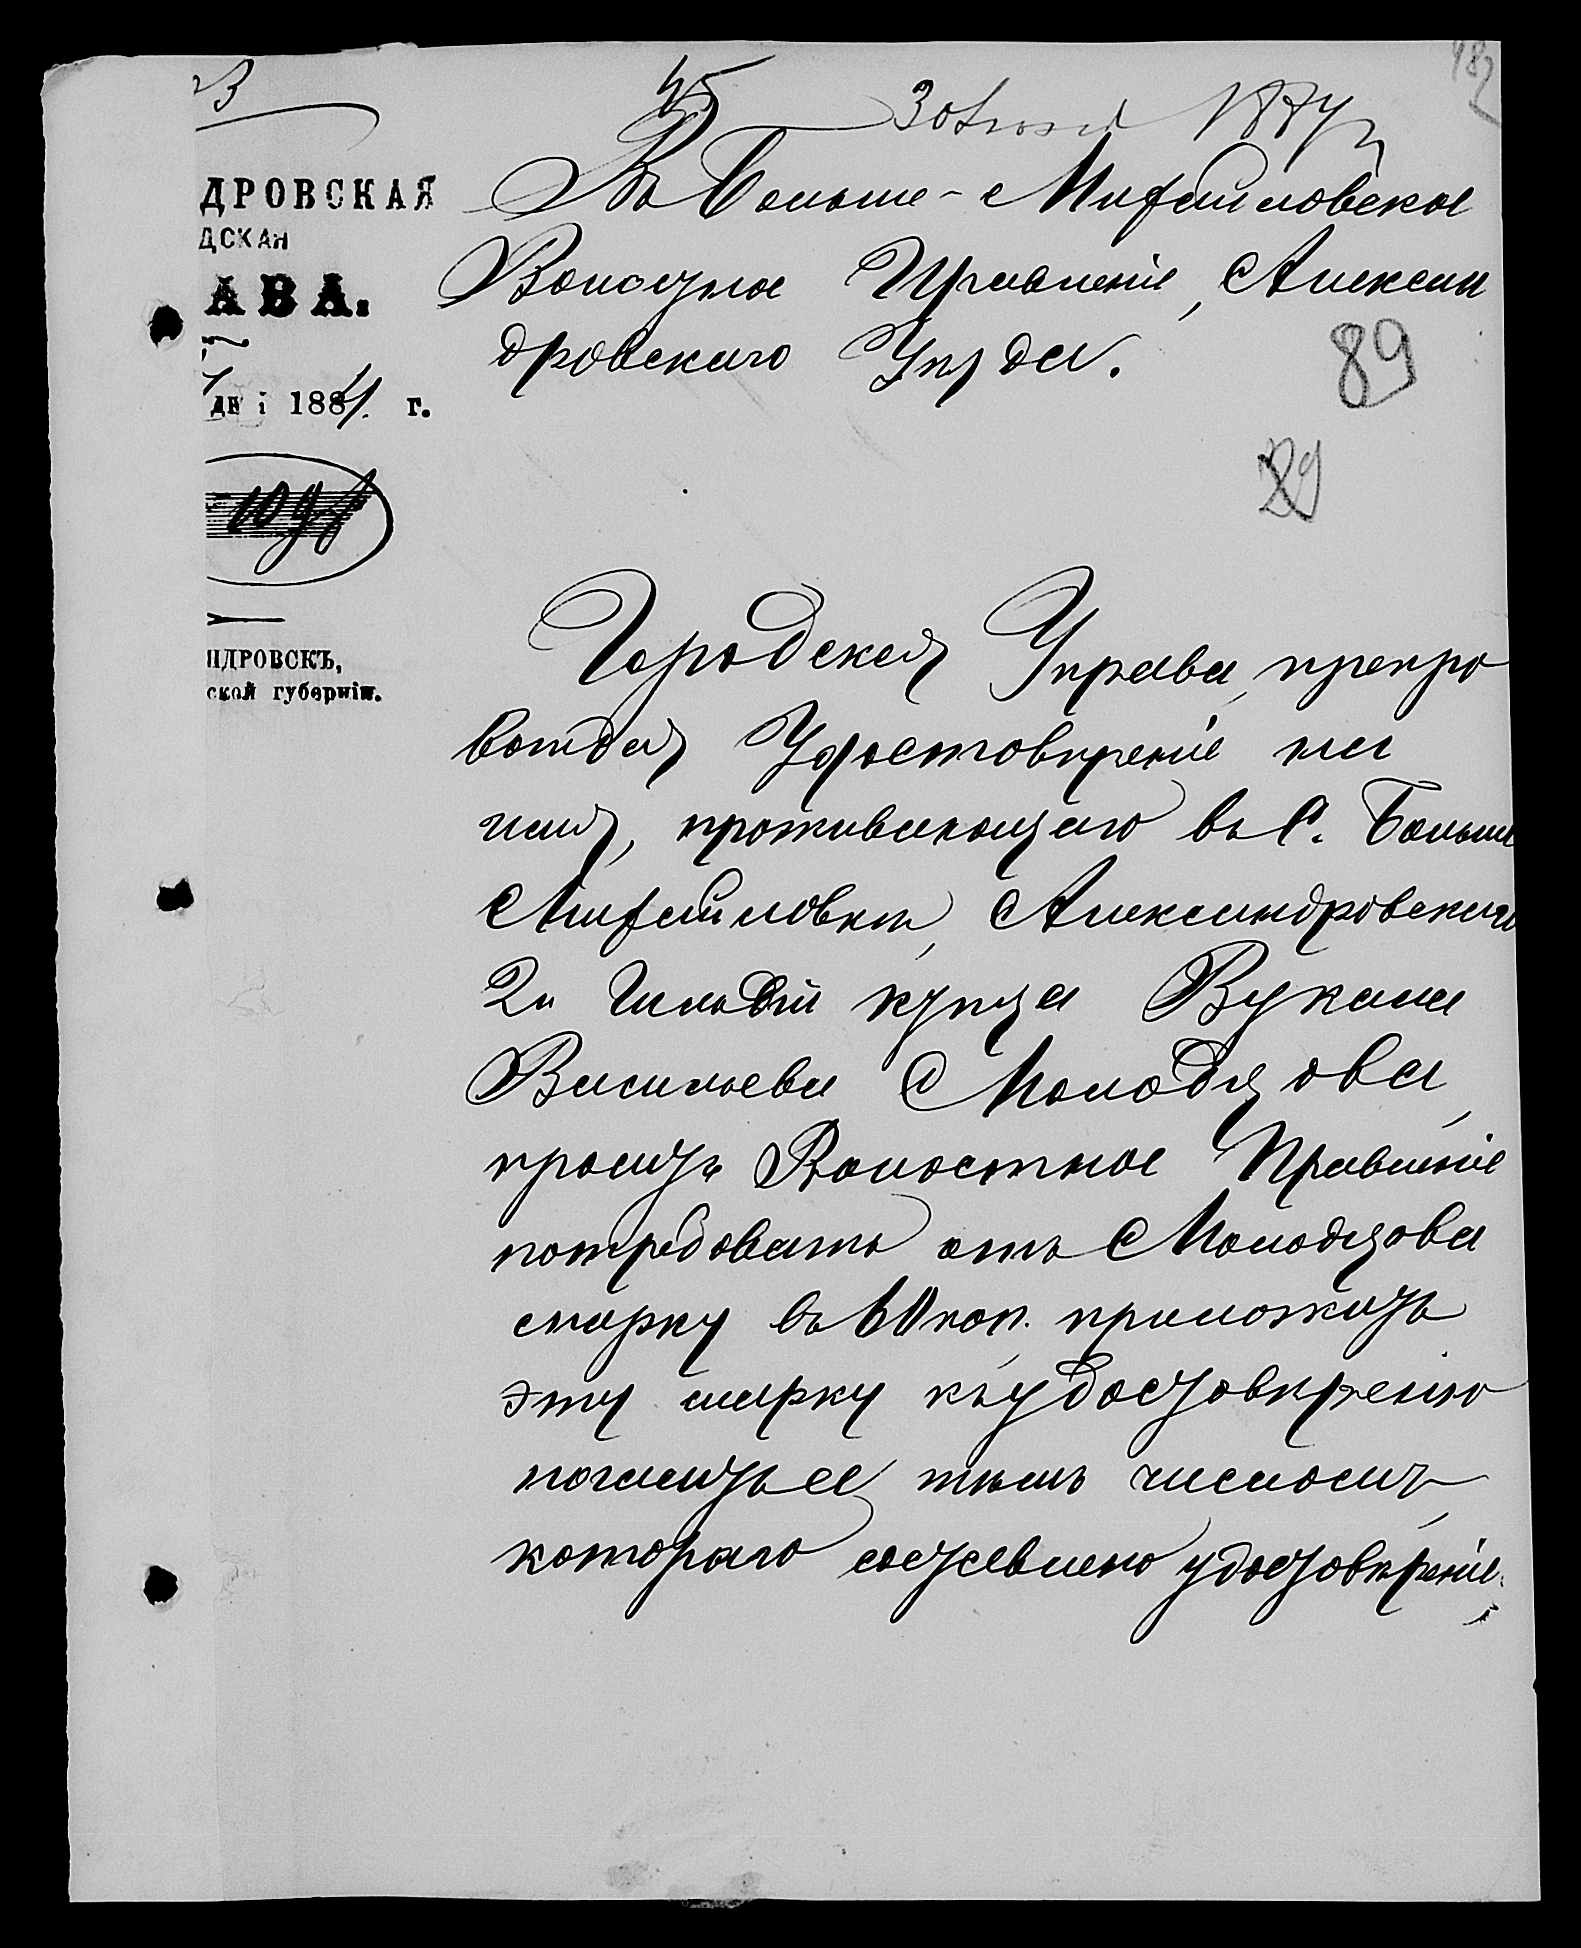 45 30 Июня 1884
ДРОВСКАЯ
ДСКАЯ
АВА.
дня 1884 г.
НДРОВСКЪ,
ской губернiи.
Въ Больше-Михайловское
Волостное Правленiе, Алексан
дровскаго Уѣзда.
89
Городская Управа, препро
вождая Удостовѣренiе на
имя, проживающаго въ с. Больше
Михайловкѣ, Александровскаго
2й Гильдiи купца Вукола
Васильева Молодцова,
проситъ Волостное Правленiе
потребовать отъ Молодцова
марку въ 60 коп. приложить
эту марку къ удостовѣренiю
погасить ее тѣмъ числомъ
котораго составлено удостовѣренiе,